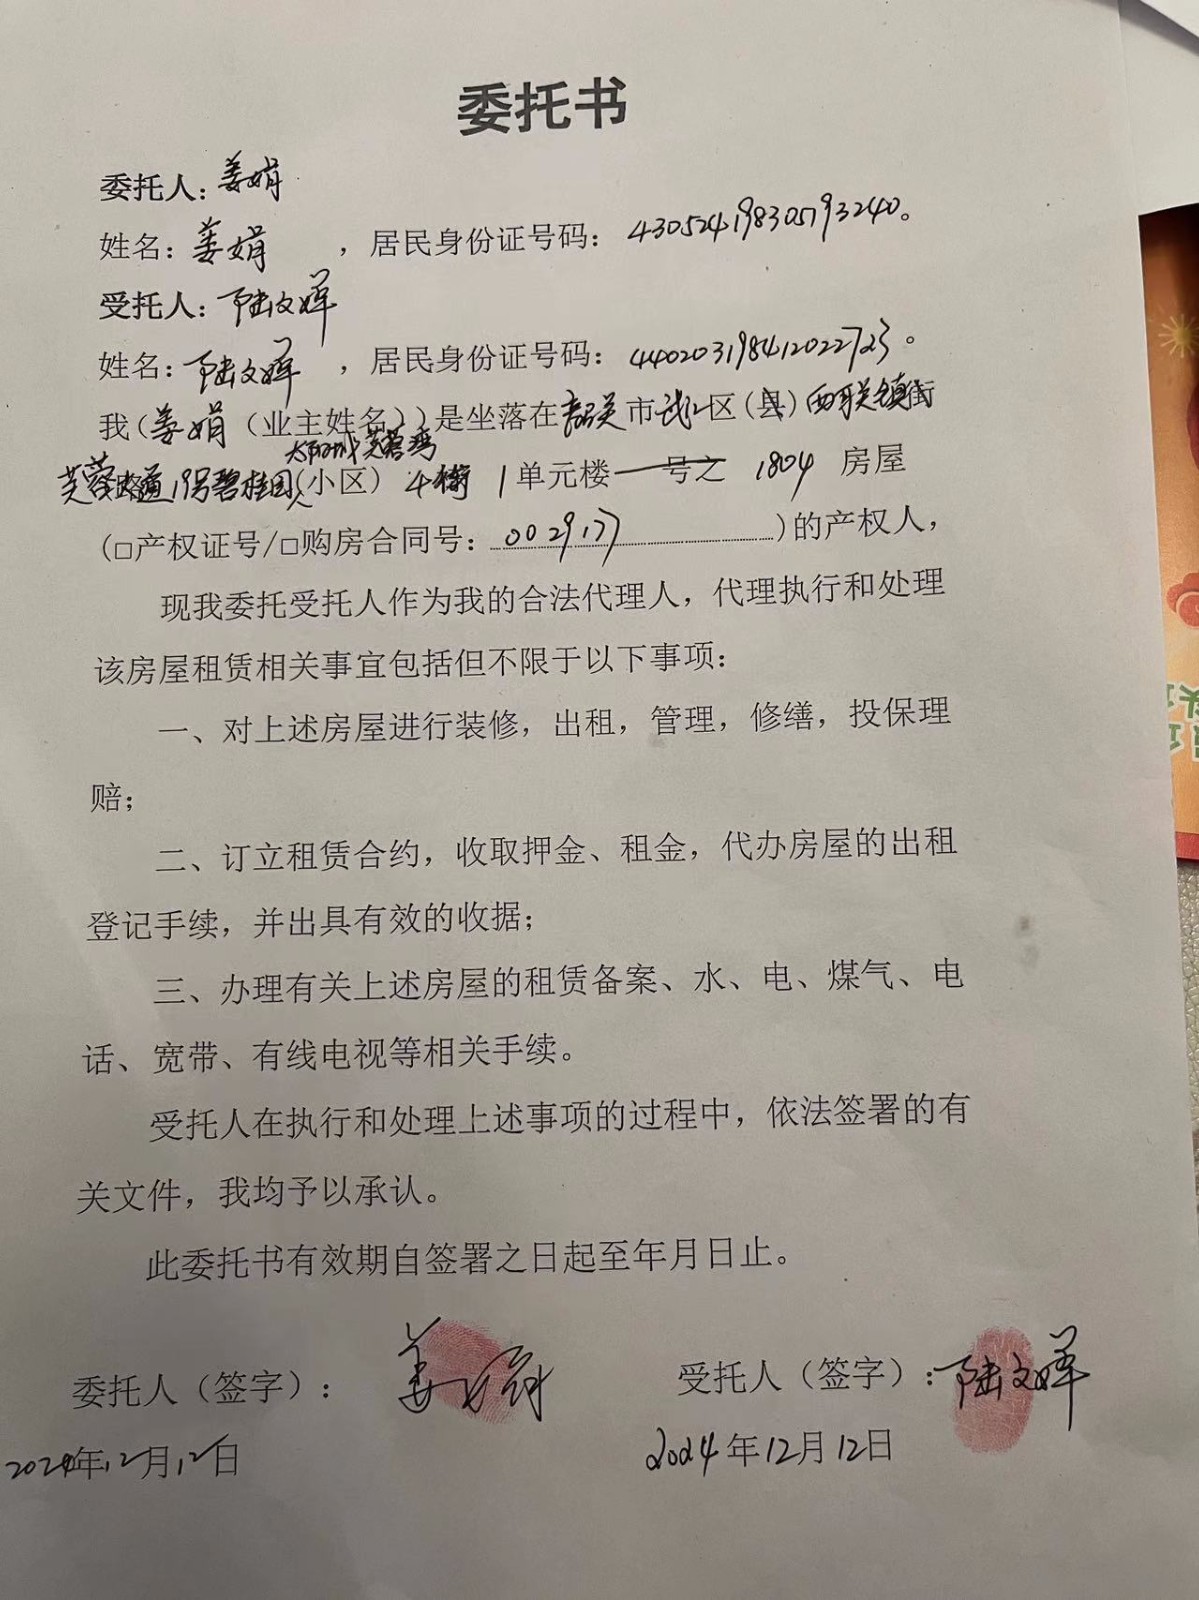 委托书
委托人：姜娟
姓名：姜娟，居民身份证号码：430524198305193240。
受托人：陆文婵
姓名：陆文婵，居民身份证号码：440203198412022723。
我（姜娟（业主姓名））是坐落在韶关市武江区（县）西联镇街
太阳城芙蓉湾
芙蓉大道19号碧桂园（小区）4街1单元楼一号之1804房屋
（□产权证号/□购房合同号：0029177）的产权人，
现我委托受托人作为我的合法代理人，代理执行和处理
该房屋租赁相关事宜包括但不限于以下事项：
一、对上述房屋进行装修，出租，管理，修缮，投保理
赔；
二、订立租赁合约，收取押金、租金，代办房屋的出租
登记手续，并出具有效的收据；
三、办理有关上述房屋的租赁备案、水、电、煤气、电
话、宽带、有线电视等相关手续。
受托人在执行和处理上述事项的过程中，依法签署的有
关文件，我均予以承认。
此委托书有效期自签署之日起至年月日止。
委托人（签字）：姜娟 受托人（签字）：陆文婵
2024年12月12日 2024年12月12日